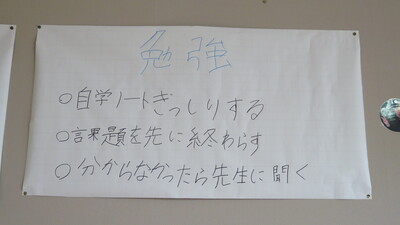 勉強
○自学ノートぎっしりする
○課題を先に終わらす
○分からなかったら先生に聞く